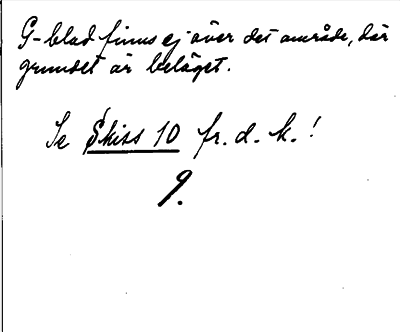 G-blad finns ej över det område, där
grundet är beläget.
Se Skiss 10 fr. d. k.!
9.